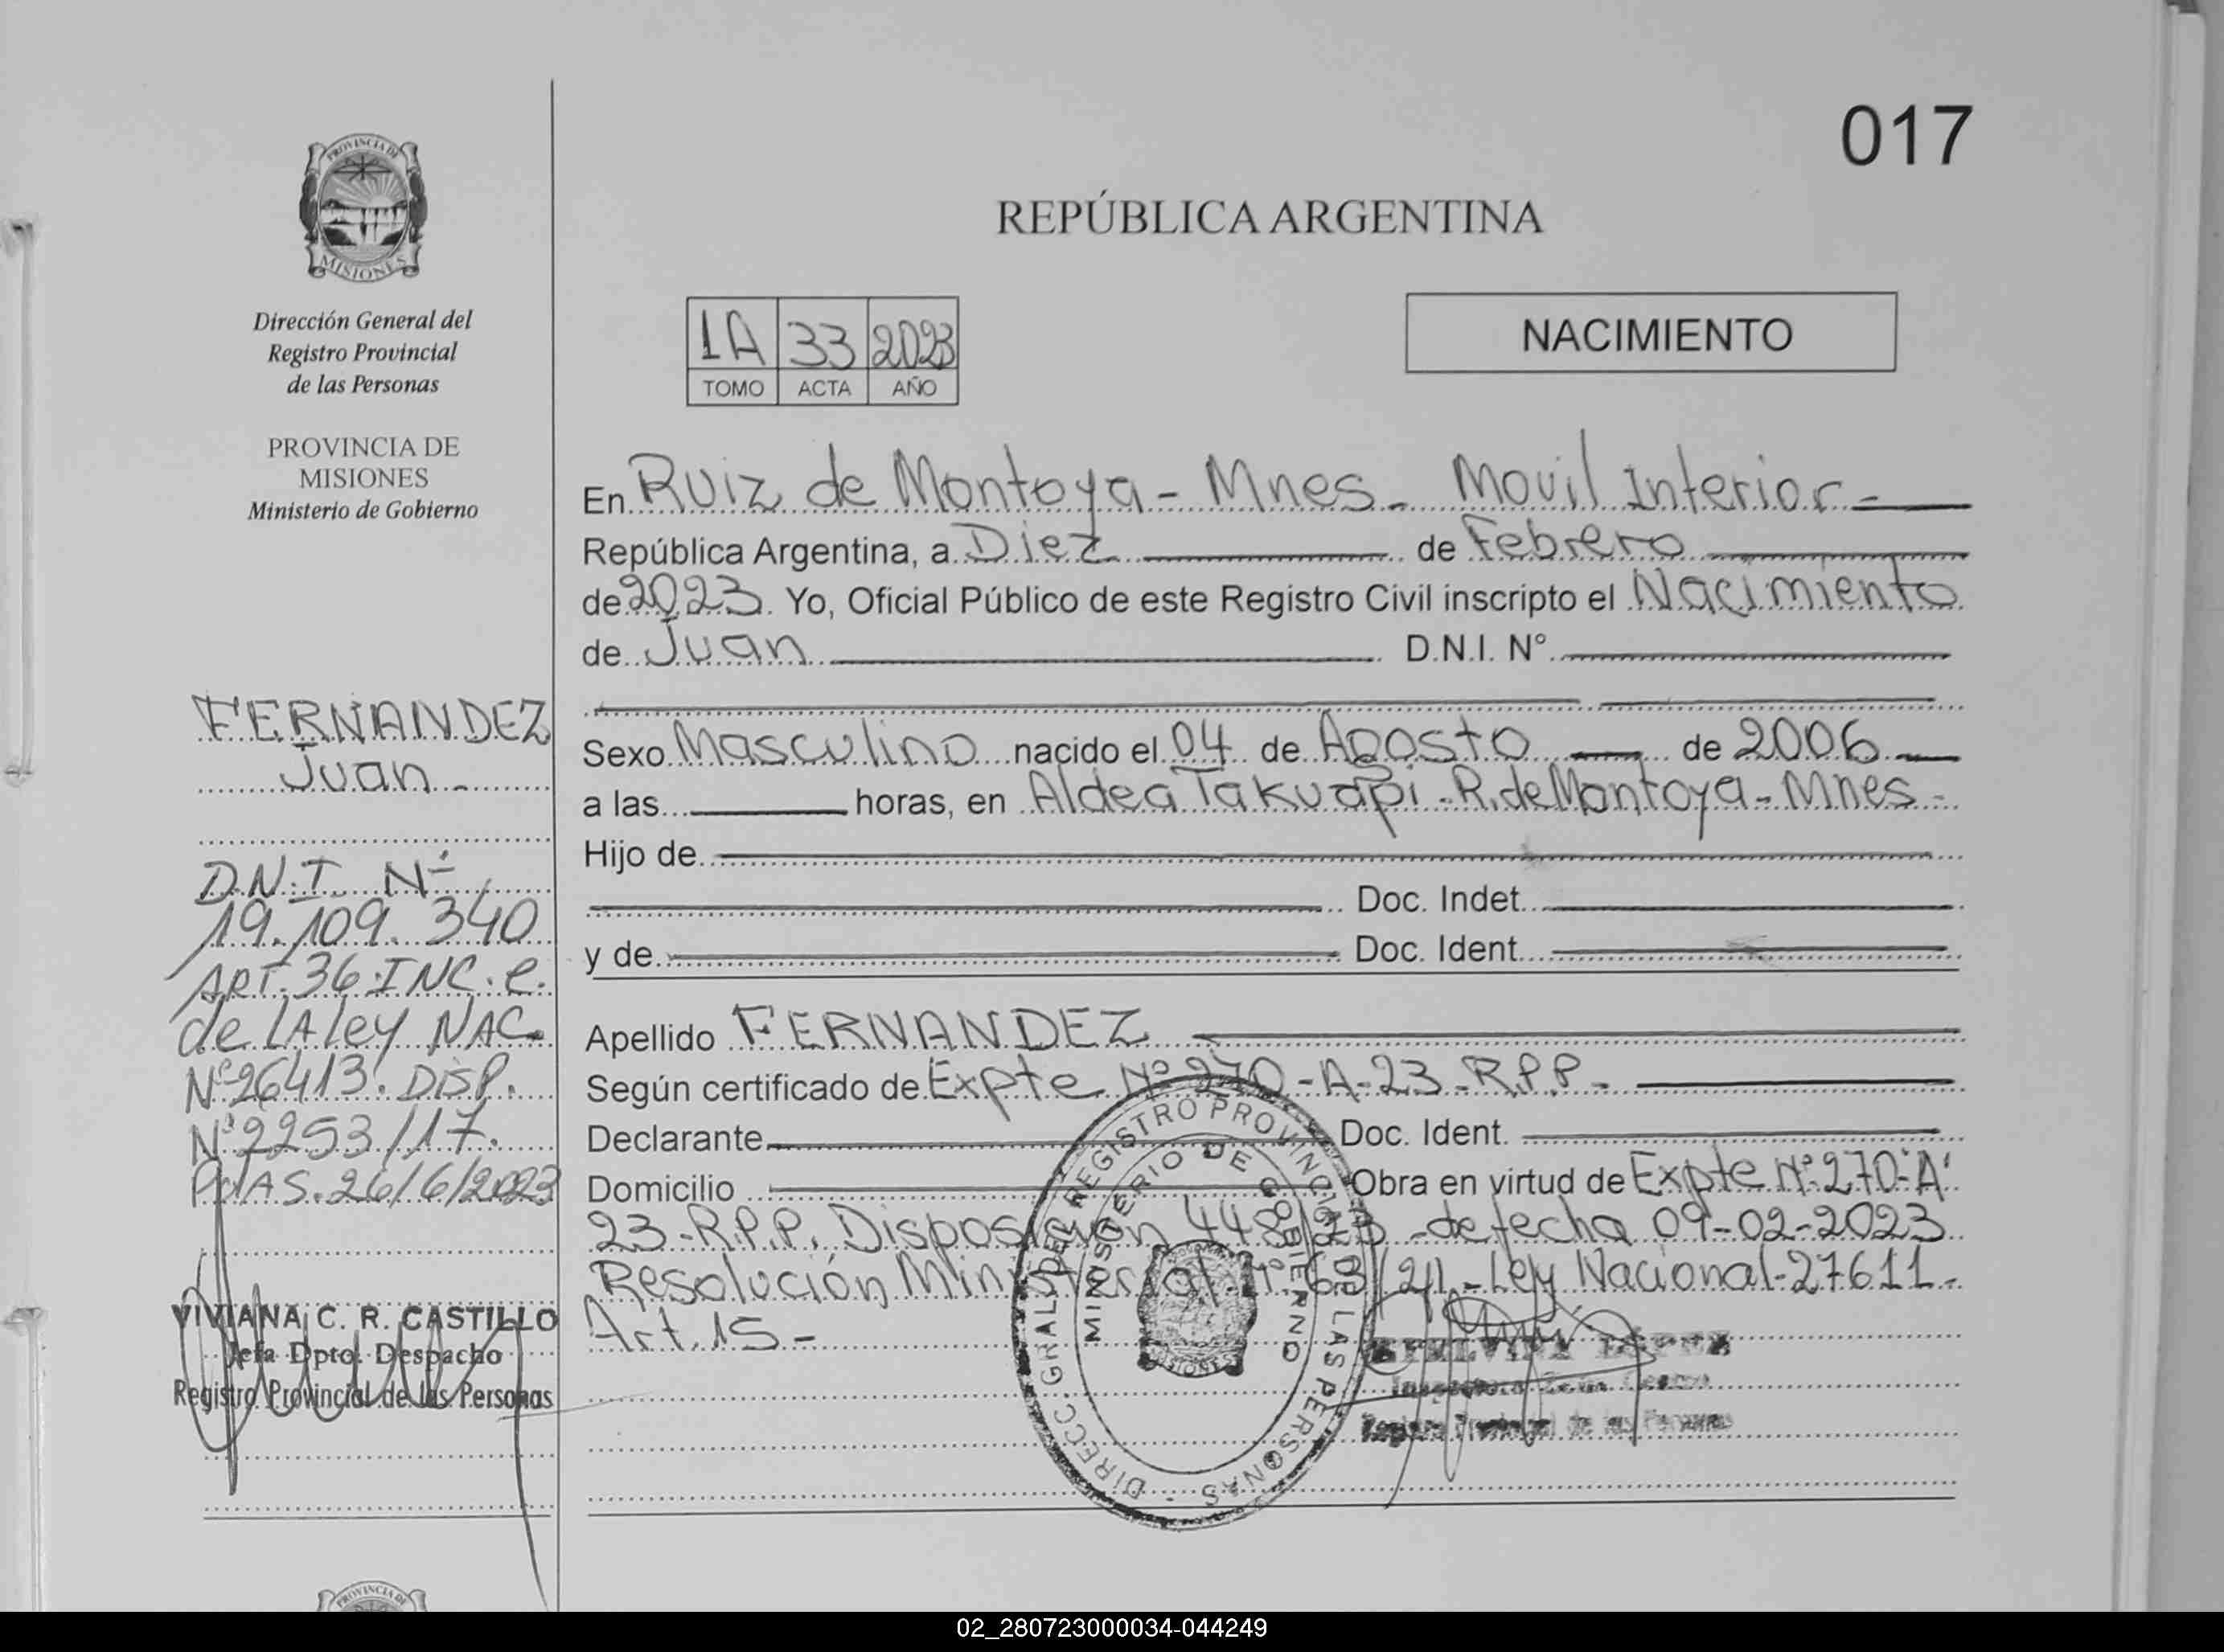 017
PROVINCIA DE
MISIONES
REPÚBLICA ARGENTINA
Dirección General del
Registro Provincial
de las Personas
PROVINCIA DE
MISIONES
Ministerio de Gobierno
1A 33 2023
TOMO ACTA AÑO
NACIMIENTO
En Ruiz de Montoya - Mnes - Movil Interior -
República Argentina, a Diez de Febrero
de 2023. Yo, Oficial Público de este Registro Civil inscripto el Nacimiento
de Juan D.N.I. N°
Sexo Masculino nacido el 04 de Agosto de 2006
a las horas, en Aldea Takuapi - R. de Montoya - Mnes -
Hijo de
Doc. Indet.
y de Doc. Ident.
Apellido FERNANDEZ
Según certificado de Expte N° 270 - A - 23 - R.P.P -
Declarante Doc. Ident.
Domicilio Obra en virtud de Expte N° 270 "A"
23 - R.P.P. Disposición 448/23 - de fecha 09-02-2023
Resolución Ministerial - Ley Nacional - 27611 -
Art. 15 -
FERNANDEZ
Juan -
D.N.I. N°
19.109.340
ART. 36 INC. e.
de LA ley NAC.
N° 26413. DISP.
N° 2253/17.
PdAS. 26/6/2023
VIVIANA C. R. CASTILLO
Jefa Dpto. Despacho
Registro Provincial de las Personas
DIRECC. GRAL. DEL REGISTRO PROVINCIAL DE LAS PERSONAS
MINISTERIO DE GOBIERNO
MISIONES
LOPEZ
Registro Provincial de las Personas
PROVINCIA DE
02_280723000034-044249